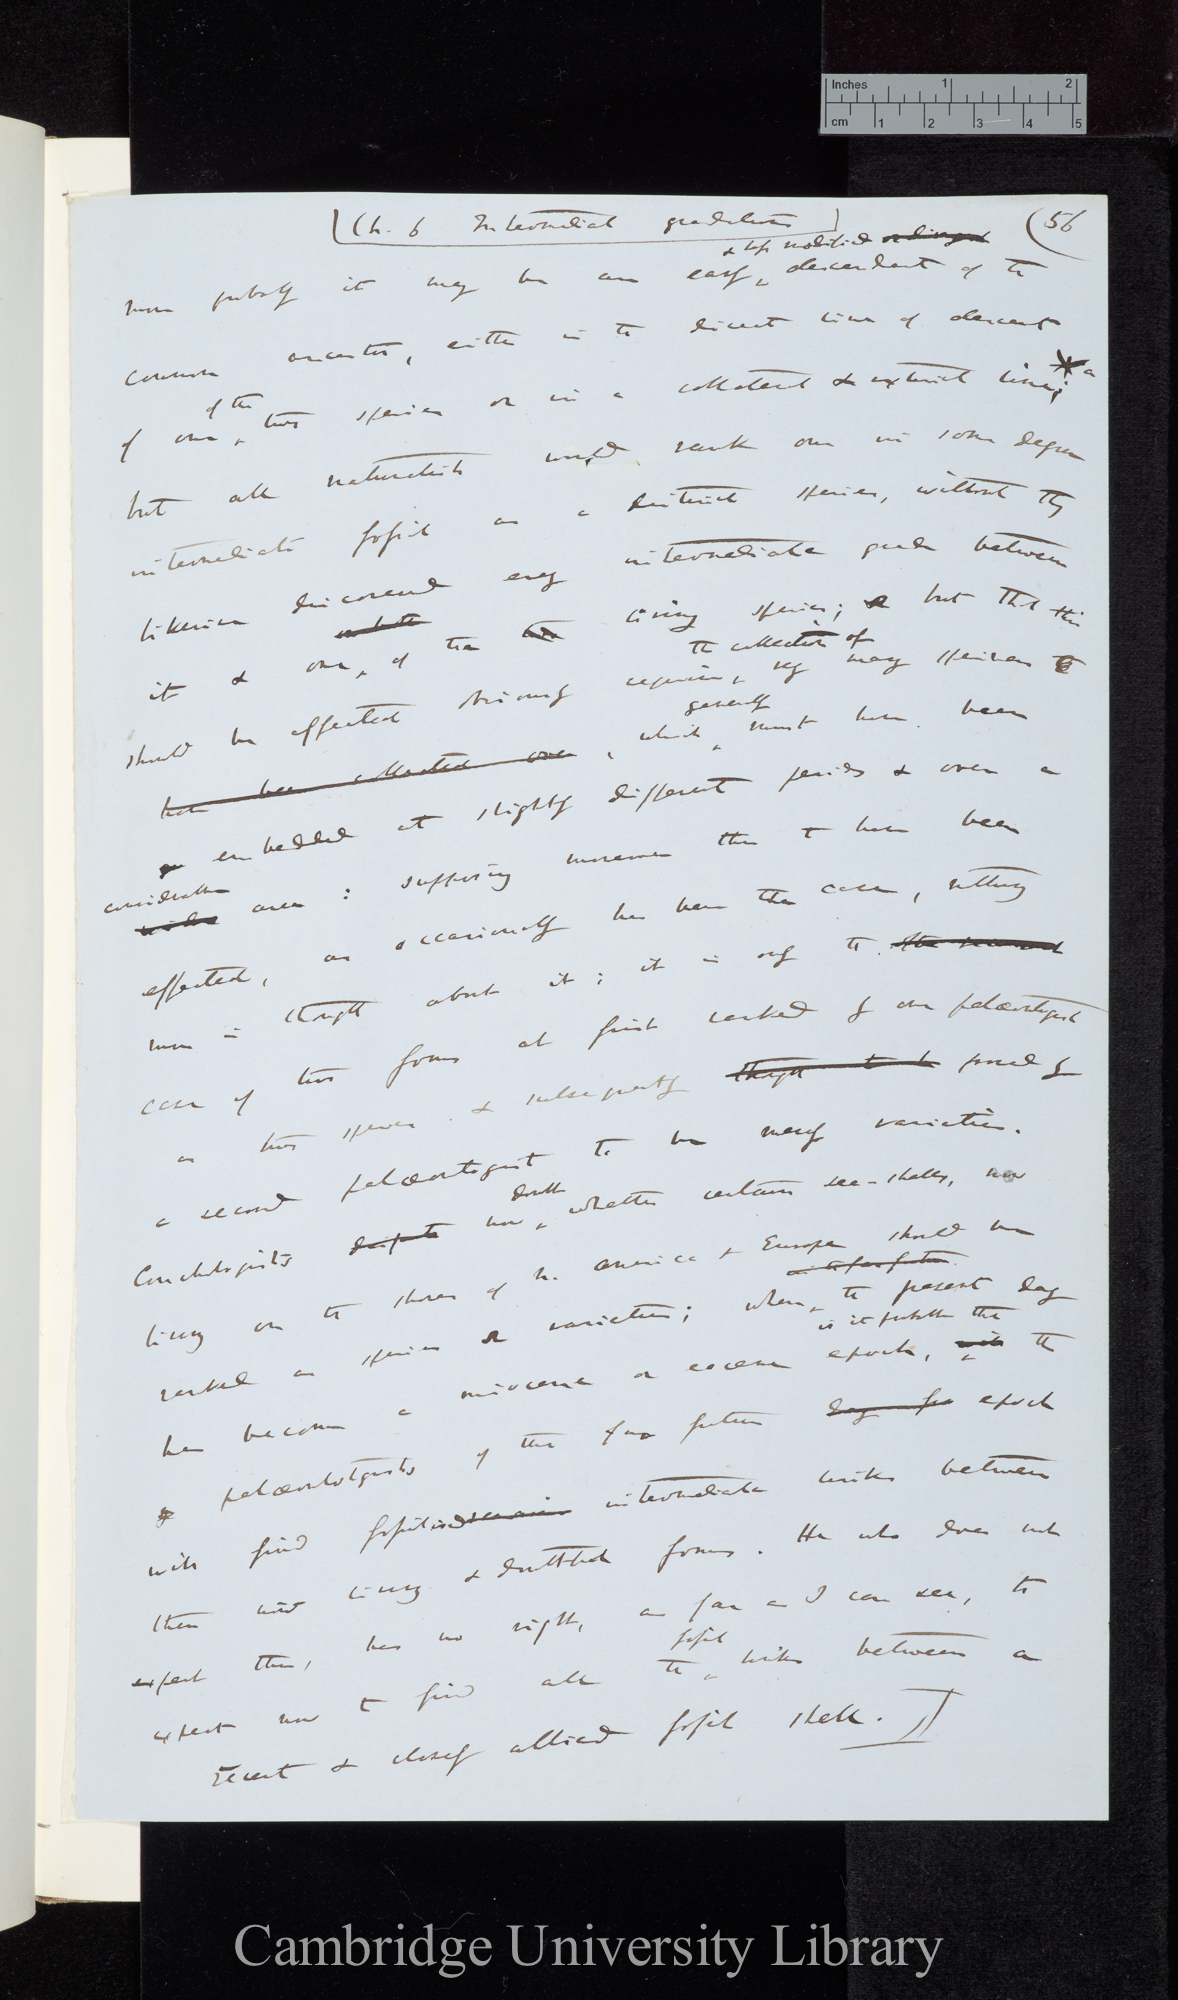 Inches 1 2
cm 1 2 3 4 5
(Ch. 6 Intermediate gradations) (56
& less modified
more probably it may be an early descendant of the
common ancestor, either in the direct line of descent
of the
of one two species or in a collateral & extinct line; a
but all naturalists would rank one in some degree
intermediate fossil as a distinct species, without they
likewise discovered every intermediate grade between
it & one of the two living species; but that this
the collection of
should be effected obviously requires, very many specimens
generally
have been collected over, which must have been
embedded at slightly different periods & over a
considerable
wide area: supposing moreover this to have been
effected, as occasionally has been the case, nothing
more is thought about it; it is only the the second
case of two forms at first ranked by one palæontologist
as two species & subsequently thought to be proved by
a second palæontologist to be merely varieties.
doubt
Conchologists dispute now whether certain sea-shells, now
living on the shores of N. America & Europe should be
in the far future
ranked as species or varieties; when the present day
is it probable that
has become a miocene or eocene epoch, will the
palæontologists of this far future day epoch
will find fossilised intermediate links between
these now living & doubtful forms. He who does not
expect this, has no right, as far as I can see, to
fossil
expect now to find all the links between a
recent & closely allied fossil shell.
Cambridge University Library